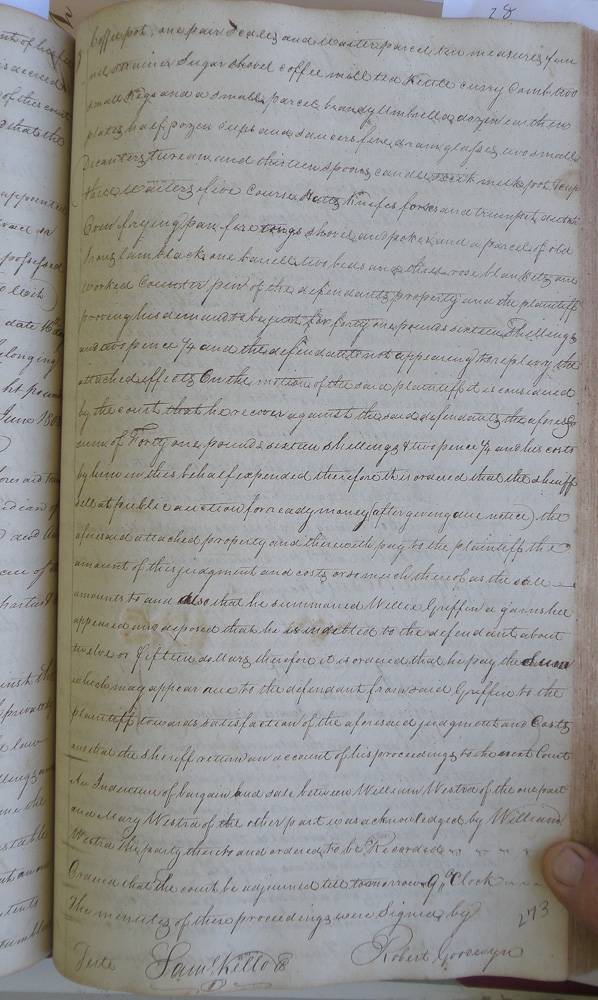 28
Coffee pot, one pair Scales and Waiter parcel tin measures, funn
and strainer Sugar shovel coffee mill tea Kettle curry Comb two
small Kegs and a small parcel brandy Umbrella dozen earthen
plates half dozen cups and saucers five dram glasses two small
Decanters, two cam and thirteen spoons, candle stick milk pot Soup
three waiters, five Course Hatts, Knifes forks and trumpet,
Cow frying pan fire tongs shovel and poker, and a parcel of old
Iron, lamblack, one barrell, two beds and three rose blankets, one
worked Counter pin of the defendants property and the plaintiff
proving his demand to be just for forty one pounds sixteen Shillings
and two pence ¼ and the defendant not appearing to replevy the
attached effects On the motion of the said plaintiff it is considered
by the court that he recover against the said defendant the aforesd
sum of Forty one pounds sixteen shillings & two pence ¼ and his costs
by him in this behalf expended therefore it is ordered that the sheriff
sell at public auction for ready money (after giving due notice) the
aforesaid attached property and therewith pay to the plaintiff the
amount of this judgment and costs or so much thereof as the sale
amounts to and also that he summoned Willie Griffin a garnishee
appeared and deposed that he is indebted to the defendant about
twelve or fifteen dollars, therefore it is ordered that he pay the Sum
which may appear due to the defendant from said Griffin to the
plaintiff towards satisfaction of the aforesaid judgment and Costs
and that the sheriff return an account of his proceedings to the next Court
An Indenture of bargain and sale between William Westra of the one part
and Mary Westra of the other part was acknowledged by William
Westra the party thereto and ordered to be Recorded
Ordered that the court be adjourned till tomorrow 9 o Clock
The minutes of these proceedings were Signed by
Teste Saml. Kello C Robert Goodwyn
273